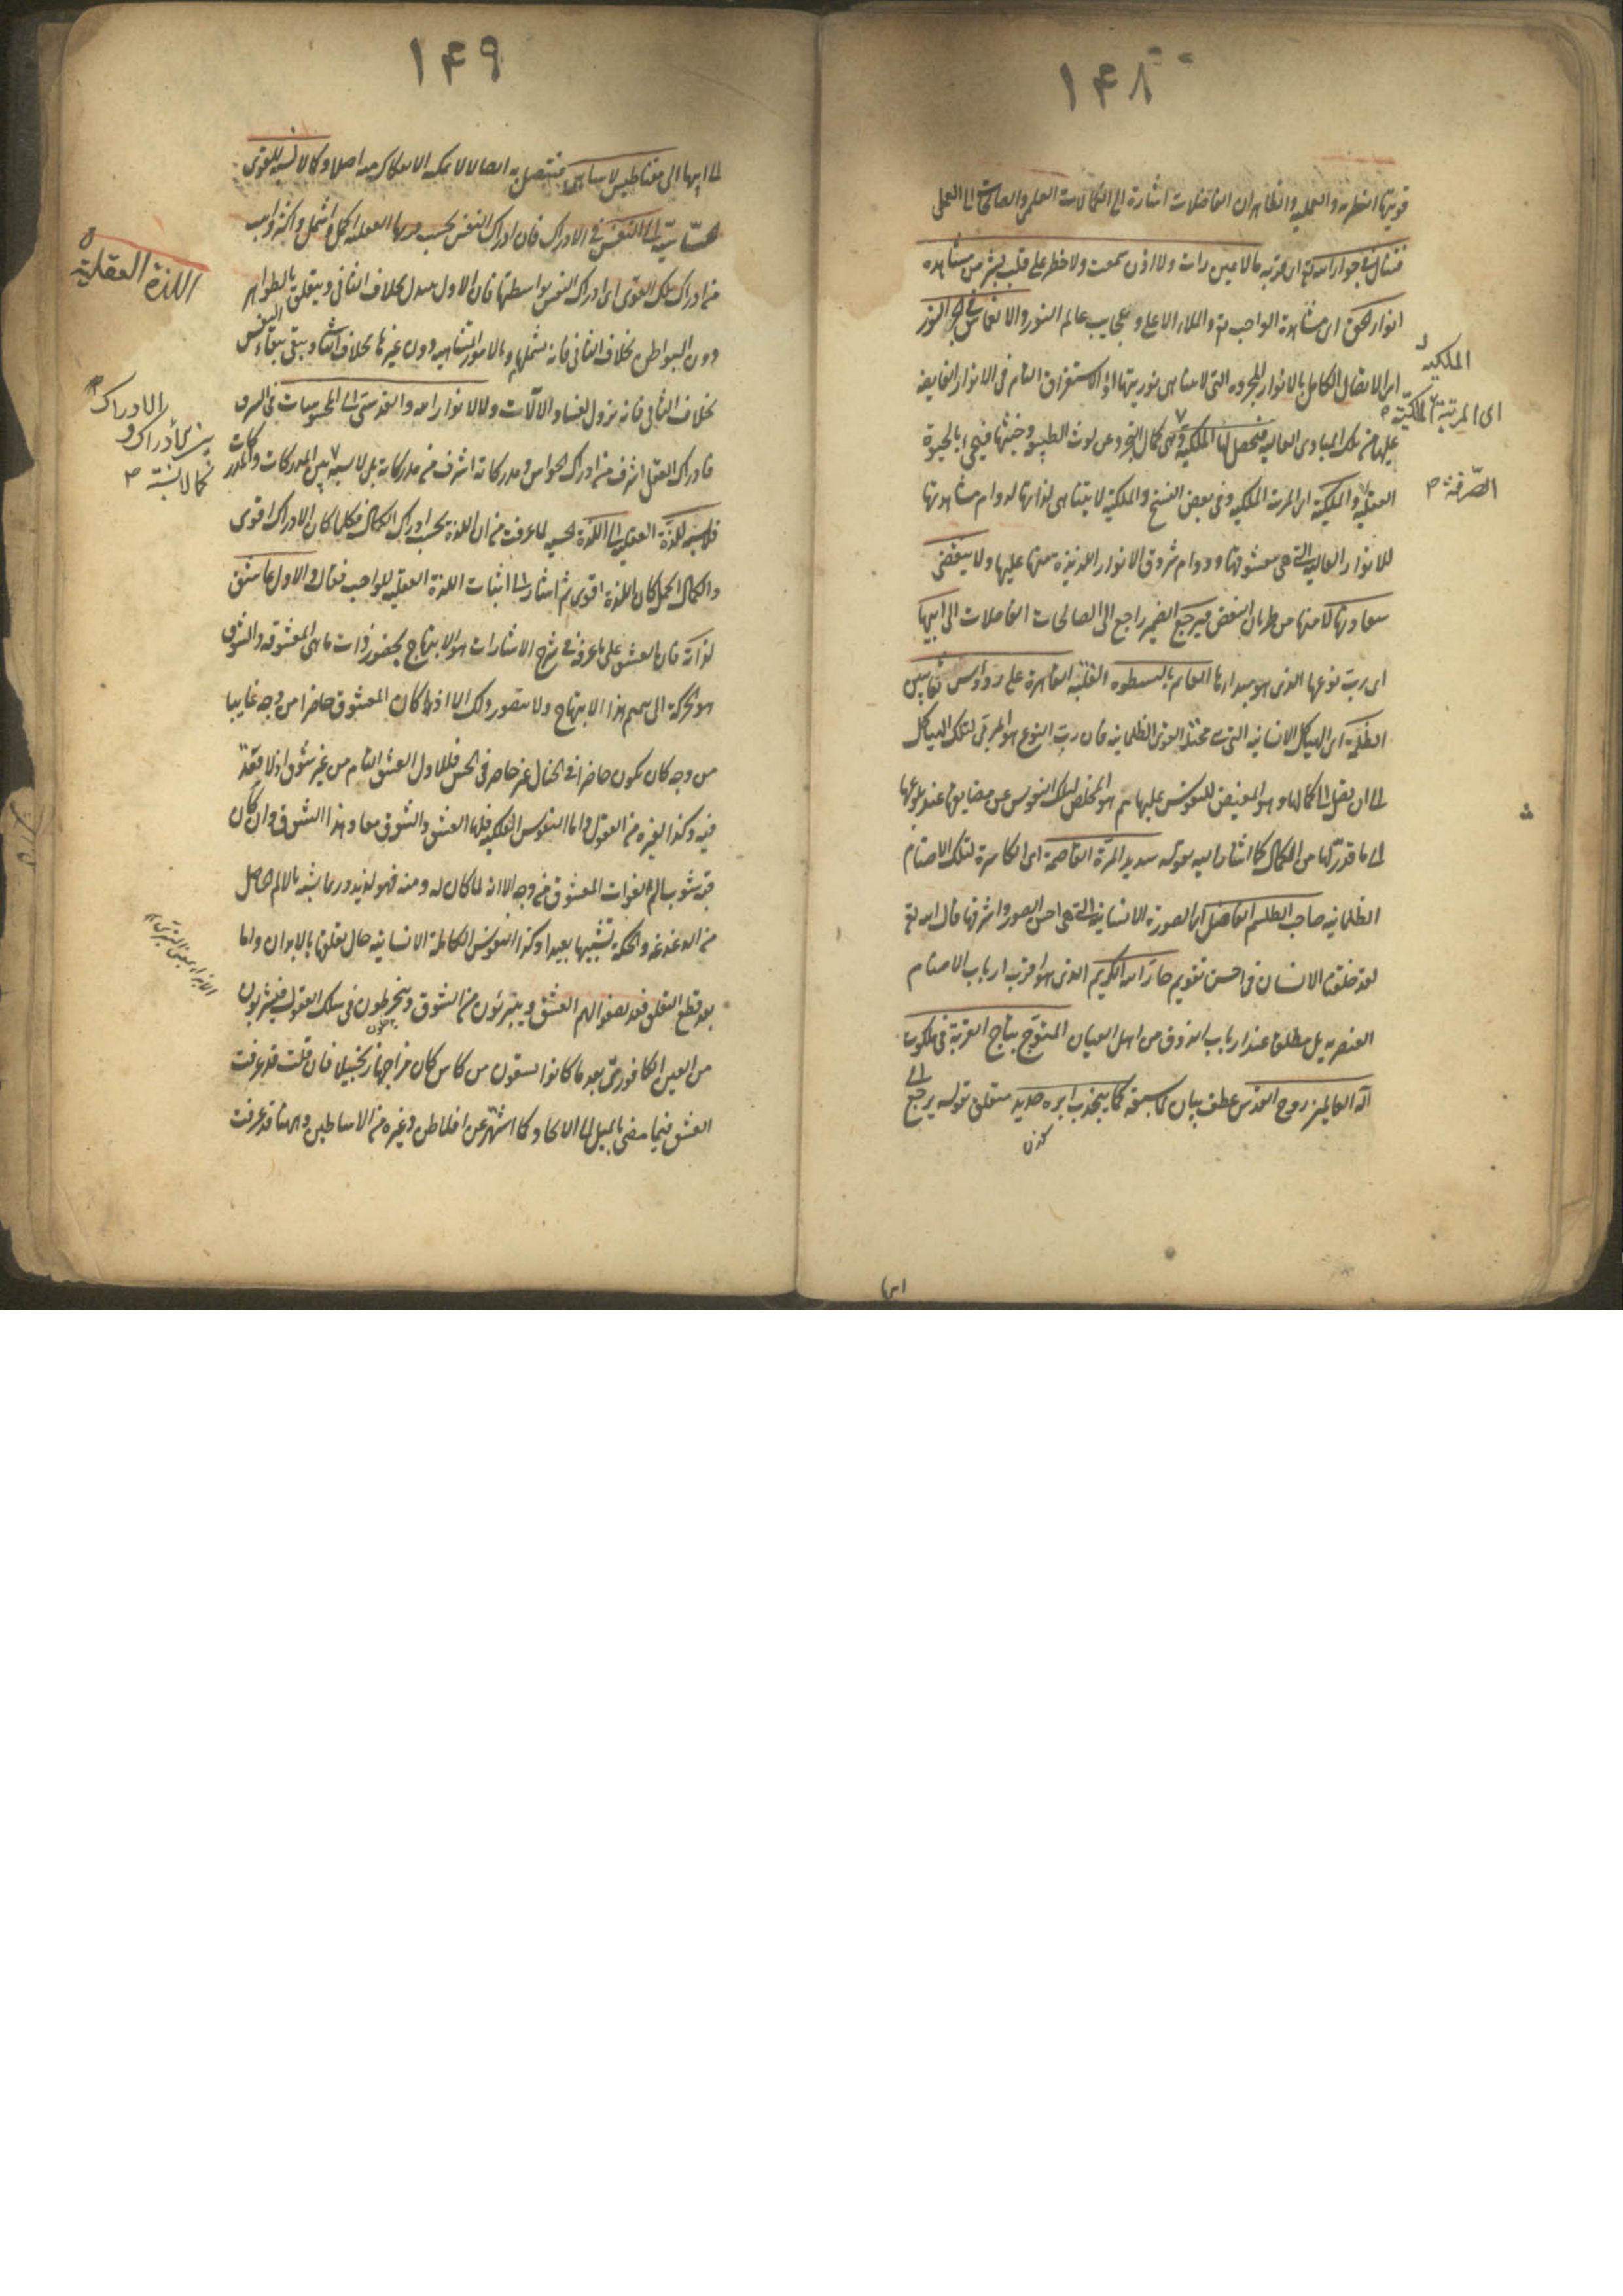 ١٤٨
قوتيها النظرية والعملية والظاهر ان الفاضلات اشارة الى الكمالات العلمى والصالحات الى العملى
فتنال فى جوار الله تع اى قربه ما لا عين رات ولا اذن سمعت ولا خطر على قلب بشر من مشاهدة
انوار الحق اى مشاهدة الواجب تع والملاء الاعلى وعجايب عالم النور والانغماس فى بحر النور
اى الاتصال الكامل بالانوار المجردة التى لا يتناهى نوريتها او الاستغراق التام فى الانوار الفايضة
عليها من تلك المبادى العالية فتحصل لها الملكية وهى كمال التجرد عن لوث الطبيعة وخبثها فيحيى بالحيوة
العقلية والملكية اى المرتبة الملكية وفى بعض النسخ والملكية لا يتناهى لذاتها لدوام مشاهدتها
للانوار العالية التى هى معشوقتها ودوام شروق الانوار اللذيذة منها عليها ولا ينقضى
سعاداتها لامنها من طريان النقص فيرجع الضمير راجع الى الصالحات الفاضلات الى ابيها
اى رب نوعها الذى هو مبدأها القائم بالسطوة القاهرة على رؤوس ثعابين
الظلمة اى الهياكل الانسانية التى تحتها القوى الظلمانية فان رب النوع هو المربى لتلك الهياكل
الى ان تصل الى كمالها وهو المفيض للنفوس عليها ثم هو المخلص لتلك النفوس عن مضايقها عند بلوغها
الى ما قدر لها من الكمال كما اشار اليه بقوله شديد المرة القاصمة اى الكاسرة لتلك الاصنام
الظلمانية صاحب الطلسم الفاضل اى الصورة الانسانية التى هى احسن الصور واشرفها قال الله تع
لقد خلقنا الانسان فى احسن تقويم جار الله الكريم الذى هو اقرب ارباب الاصنام
العنصرية بل مطلقا عند ارباب الذوق من اهل العيان المتوج بتاج القربة فى ملكوت
اله العالمين روح القدس عطف بيان لما سبقه كما ينجذب ابرة حديد متعلق بقوله يرجع
الملكية
اى المرتبة الملكية
الصرفة
١٤٩
الى ابيها الى مغناطيس لا يتناهى فيتصل به اتصالا لا يمكنه الانفكاك عنه اصلا وكما لا نسبة للقوى
الحساسة الى النفس فى الادراك فان ادراك النفس بحسب العقلية اكمل واشمل واكثر
من ادراك تلك القوى اى ادراك النفس بواسطتها فان الاول بخلاف الثانى ويتعلق بالظواهر
دون البواطن بخلاف الثانى فانه يشملهما وبالامور المتناهية دون غيرها بخلاف الثانى ويبقى ببقاء النفس
بخلاف الثانى فانه يزول بفساد الآلات ولا لانوار الله والقدسى الى المحسوسات فى الشرف
فادراك العقل اشرف من ادراك الحواس ومدركاته اشرف من مدركاته بل لا نسبة بين المدركات والمدركات
فلا نسبة للذة العقلية الى اللذة الحسية لما عرفت من ان اللذة بحسب ادراك الكمال فكلما كان الادراك اقوى
والكمال اكمل كان اللذة اقوى ثم اشار الى اثبات اللذة العقلية للواجب فقال والاول عاشق
لذاته فان العشق على ما عرفه فى شرح الاشارات هو الابتهاج بحضور ذات ما هى المعشوقة والشوق
هو الحركة الى تتميم هذا الابتهاج ولا يتصور ذلك الا اذا كان المعشوق حاضرا من وجه غايبا
من وجه كان يكون حاضرا فى الخيال غير حاضر فى الحس فللاول العشق التام من غير شوق اذ لا فقد
فيه وكذا لغيره من العقول واما النفوس الفلكية فلها العشق والشوق معا وهذا الشوق وان كان
قد يشوب بالم لفوات المعشوق من وجه الا انه لما كان له ومنه فهو لذيذ وربما يشبه بالالم الحاصل
من الدغدغة والحكة تشبيها بعيدا وكذا النفوس الكاملة الانسانية حال تعلقها بالابدان واما
بعد قطع التعلق فقد يصفو لهم العشق ويتبرئون من الشوق وينخرطون فى سلك العقول فيشربون
من العين الكافورى بعد ما كانوا يسقون من كاس كان مزاجها زنجبيلا فان قلت قد عرفت
العشق فيما مضى بالميل الى الاتحاد كما اشتهر عن افلاطن وغيره من الاساطين وههنا قد عرفت
اللذة العقلية